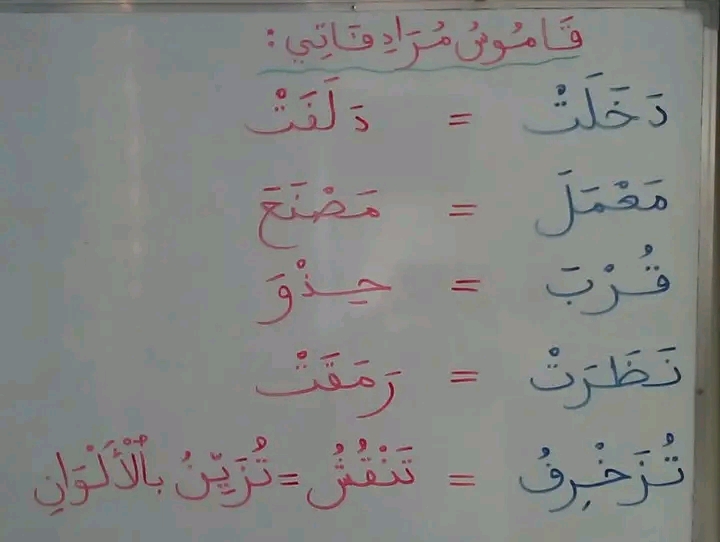 قَامُوسُ مُرَادِفَاتِي:
دَخَلَتْ = دَلَفَتْ
مَعْمَلَ = مَصْنَعَ
قُرْبَ = حِذْوَ
نَظَرَتْ = رَمَقَتْ
تُزَخْرِفُ = تَنْقُشُ = تُزَيِّنُ بِالْأَلْوَانِ